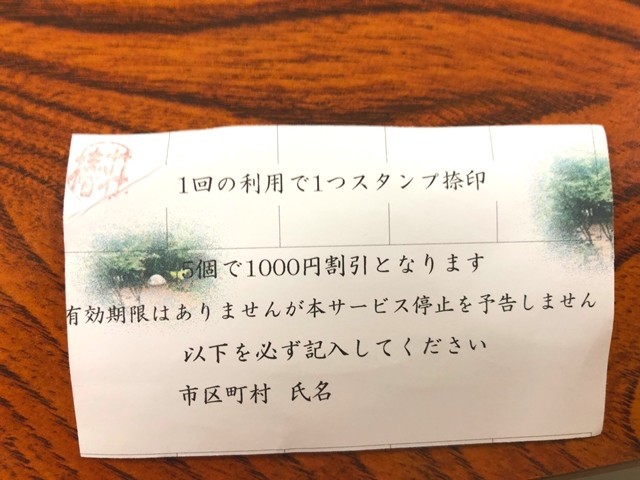 椿荘
1回の利用で1つスタンプ捺印
5個で1000円割引となります
有効期限はありませんが本サービス停止を予告しません
以下を必ず記入してください
市区町村 氏名